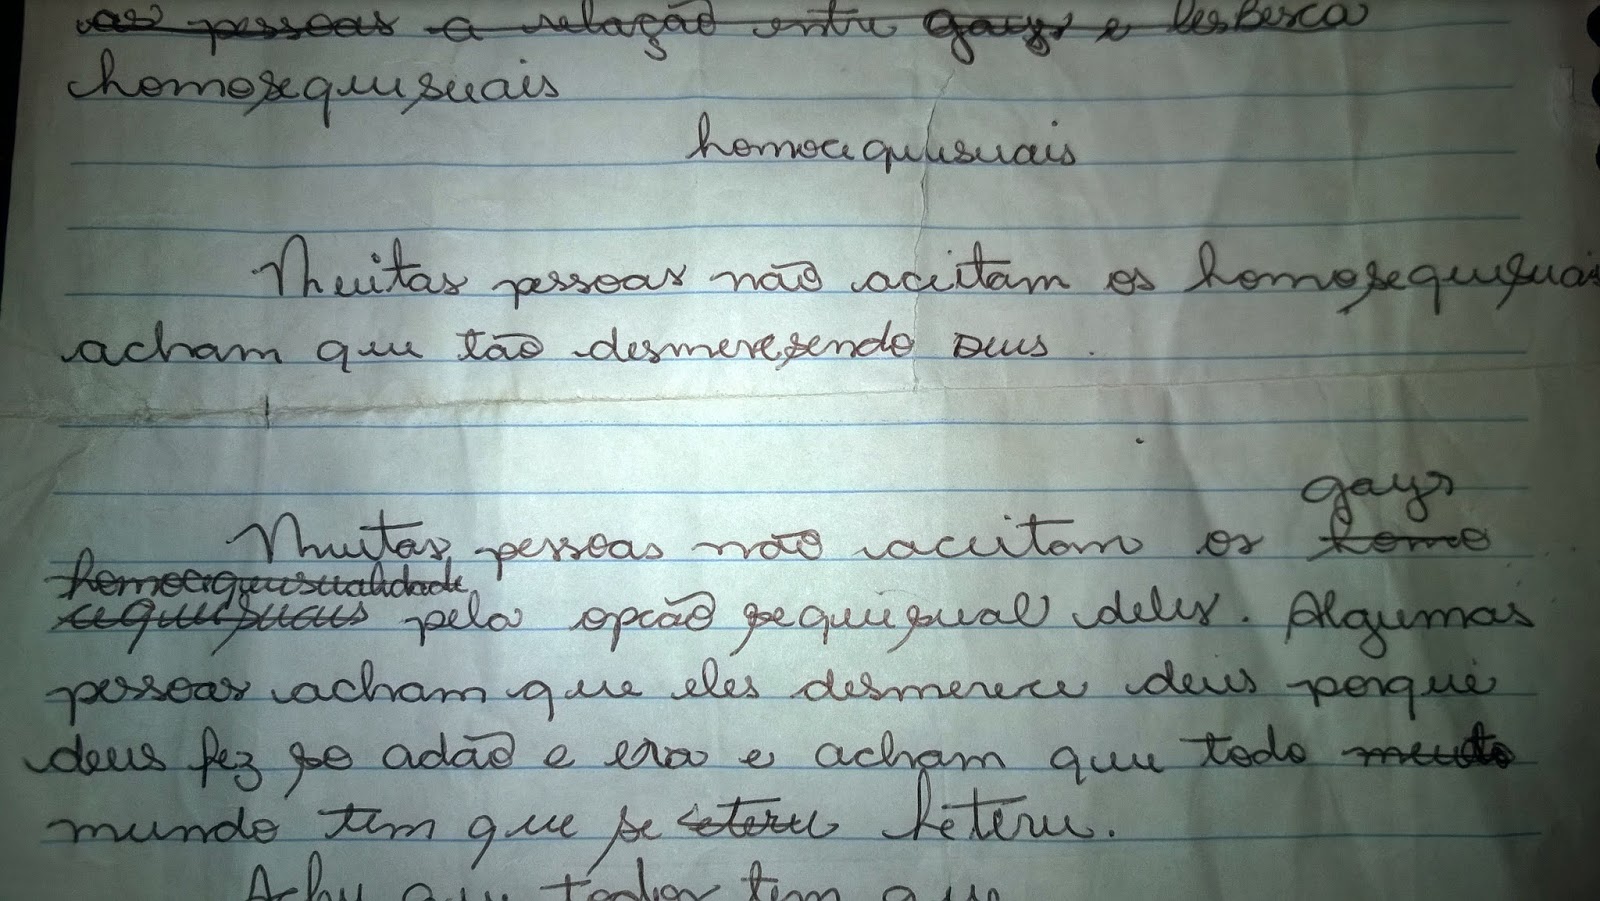 as pessoas a relação entre gays e lesbesca
homosequisuais
homocequisuais
Muitas pessoas não aceitam os homosequisuais
acham que tão desmeresendo Deus.
gays
Muitas pessoas não aceitam os homo
homocequisualidade
cequisuais pela opcão sequisual deles. Algumas
pessoas acham que eles desmerece deus porque
deus fez so adão e eva e acham que todo muto
mundo tem que se eteru héteru.
todos tem que